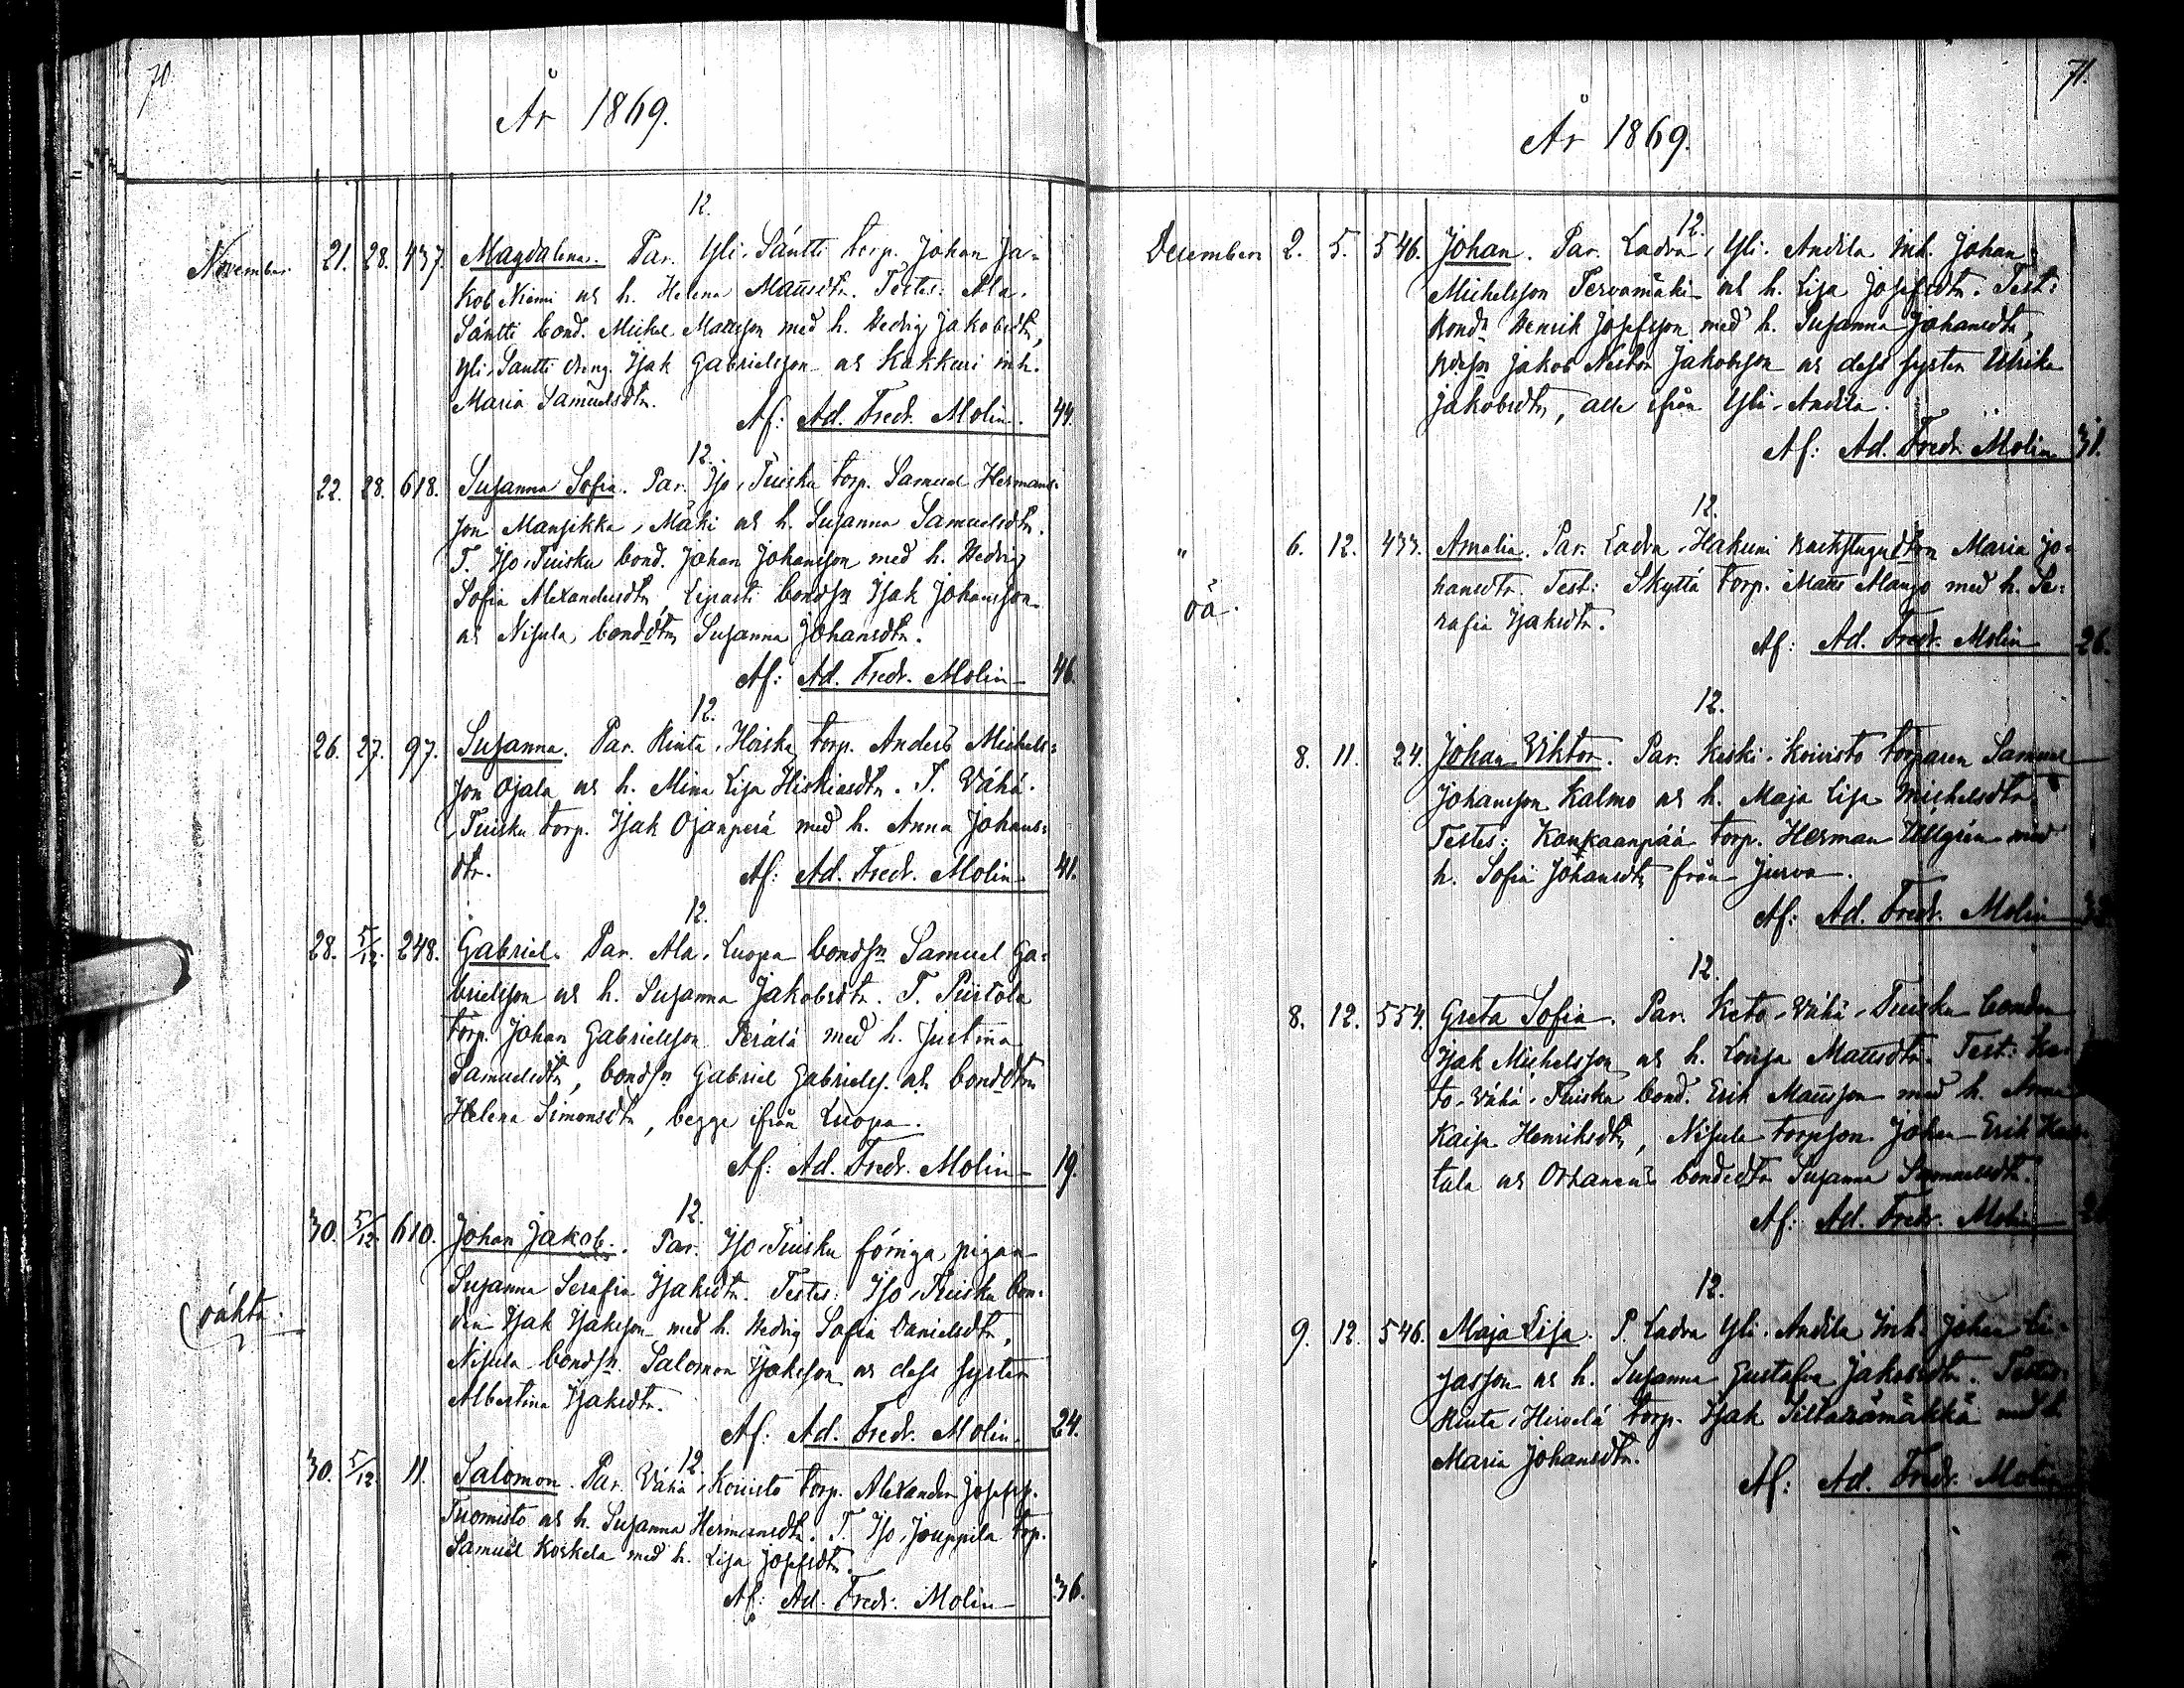 70.
År 1869.
12.
November 21. 28. 437. Magdalena. Par. Yli-Säntti torp. Johan Ja-
kob Niemi o. h. Helena Mattsdtr. Testes: Ala-
Säntti bond. Mickel Mattsson med h. Hedvig Jakobsdtr,
Yli-Säntti dreng. Isak Gabrielsson o. Kakkuri inh.
Maria Samuelsdtr.
Af: Ad. Fredr. Molin. 44.
12.
22. 28. 618. Susanna Sofia. Par. Iso-Tuisku torp. Samuel Hermans-
son Mansikka-Mäki o. h. Susanna Samuelsdtr.
T. Iso-Tuisku bond. Johan Johansson med h. Hedvig
Sofia Alexandersdtr, bondsn Isak Johansson
o. Nisula bonddtr, Susanna Johansdtr.
Af: Ad. Fredr. Molin 46.
12.
26. 27. 97. Susanna. Par. Rinta-Hoiska torp. Anders Michels-
son Ojala o. h. Mina Lisa Hiskiasdtr. T. Vähä-
Tuisku torp. Isak Ojanperä med h. Anna Johans-
dtr.
Af: Ad. Fredr. Molin. 41.
12.
28. 5/12. 248. Gabriel. Par. Ala-Luopa bondsn Samuel Ga-
brielsson o. h. Susanna Jakobsdtr. T. Piirtola
torp. Johan Gabrielsson Perälä med h. Justina
Samuelsdtr, bondsn Gabriel Gabrielss. o. bonddtr
Helena Simonsdtr, begge ifrån Luopa.
Af: Ad. Fredr. Molin 19.
12.
30. 5/12. 610. Johan Jakob. Par. Iso-Tuisku förriga pigan
(oäkta.
Susanna Serafia Isaksdtr. Testes: Iso-Tuisku bon-
den Isak Isaksson med h. Hedvig Sofia Danielsdtr,
Nisula bondsn. Salomon Isaksson o. dess syster
Albertina Isaksdtr.
Af: Ad. Fredr. Molin. 24.
12.
30. 5/12 11. Salomon. Par. Vähä-Koivisto torp. Alexander Josefss.
Tuomisto o. h. Susanna Hermansdtr. T. Iso-Jouppila torp.
Samuel Koskela med h. Lisa Josefsdtr.
Af: Ad. Fredr. Molin 36.
71.
År 1869.
12.
December 2. 5. 546. Johan. Par. Ladva-Yli-Andila inh. Johan
Michelsson Tervamäki o. h. Lisa Josefsdtr. Test:
Bondn Henrik Josefsson med h. Susanna Johansdtr,
Bdesn Jakob Nestor Jakobsson o. dess syster Ulrika
Jakobsdtr, alle ifrån Yli-Andila.
Af: Ad. Fredr. Molin 31.
12.
" 6. 12. 433. Amalia. Par. Ladva-Hakuni Backstugudtren Maria Jo-
oä.
hansdtr. Test: Skyttä torp. Matts Alango med h. Se-
rafia Isaksdtr.
Af: Ad. Fredr. Molin 26.
12.
8. 11. 24. Johan Viktor. Par. Keski-Koivisto torparen Samuel
Johansson Kalmo o. h. Maja Lisa Michelsdtr.
Testes: Kankaanpää torp. Herman Ullgren med
h. Sofia Johansdtr från Jurva.
Af: Ad. Fredr. Molin
12.
8. 12. 554. Greta Sofia. Par. Keto-Vähä-Tuisku bonden
Isak Michelsson o. h. Lovisa Mattsdtr. Test: Ke-
to-Vähä-Tuisku bond. Erik Mattsson med h. Anna
Kaisa Henriksdtr, Nisula torpson Johan Erik
tala o. bondedtr Susanna Samuelsdtr.
Af: Ad. Fredr. Molin
12.
9. 12. 546. Maja Lisa. P. Ladva Yli-Andila Inh. Johan
jasson o. h. Susanna Gustafva Jakobsdtr. Testes:
Rinta-Hirvelä torp. Isak med h.
Maria Johansdtr.
Af: Ad. Fredr. Molin